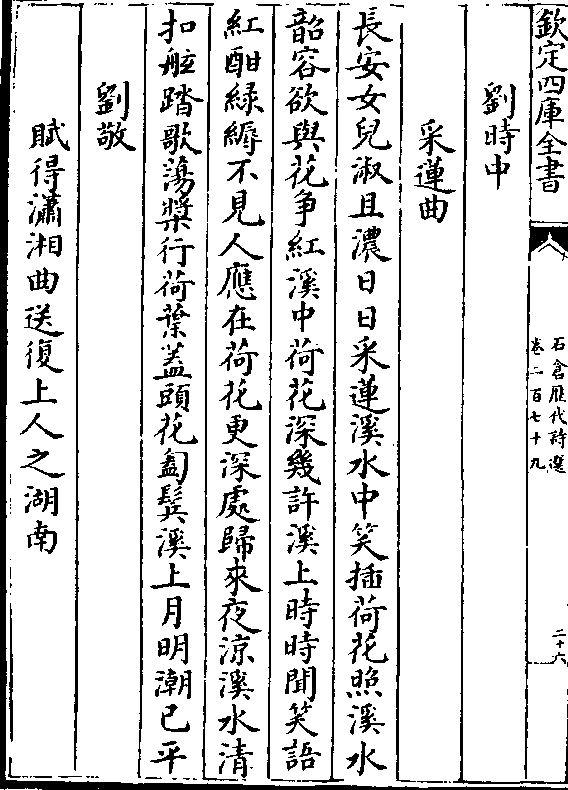 欽定四庫全書
石倉歴代詩選
卷二百七十九
二十六
劉時中
采蓮曲
長安女兒淑且濃日日采蓮溪水中笑插荷花照溪水
韶容欲與花争紅溪中荷花深幾許溪上時時聞笑語
紅酣緑縟不見人應在荷花更深處歸來夜涼溪水清
扣舷踏歌蕩槳行荷葉蓋頭花匌鬂溪上月明潮已平
劉敬
賦得瀟湘曲送復上人之湖南